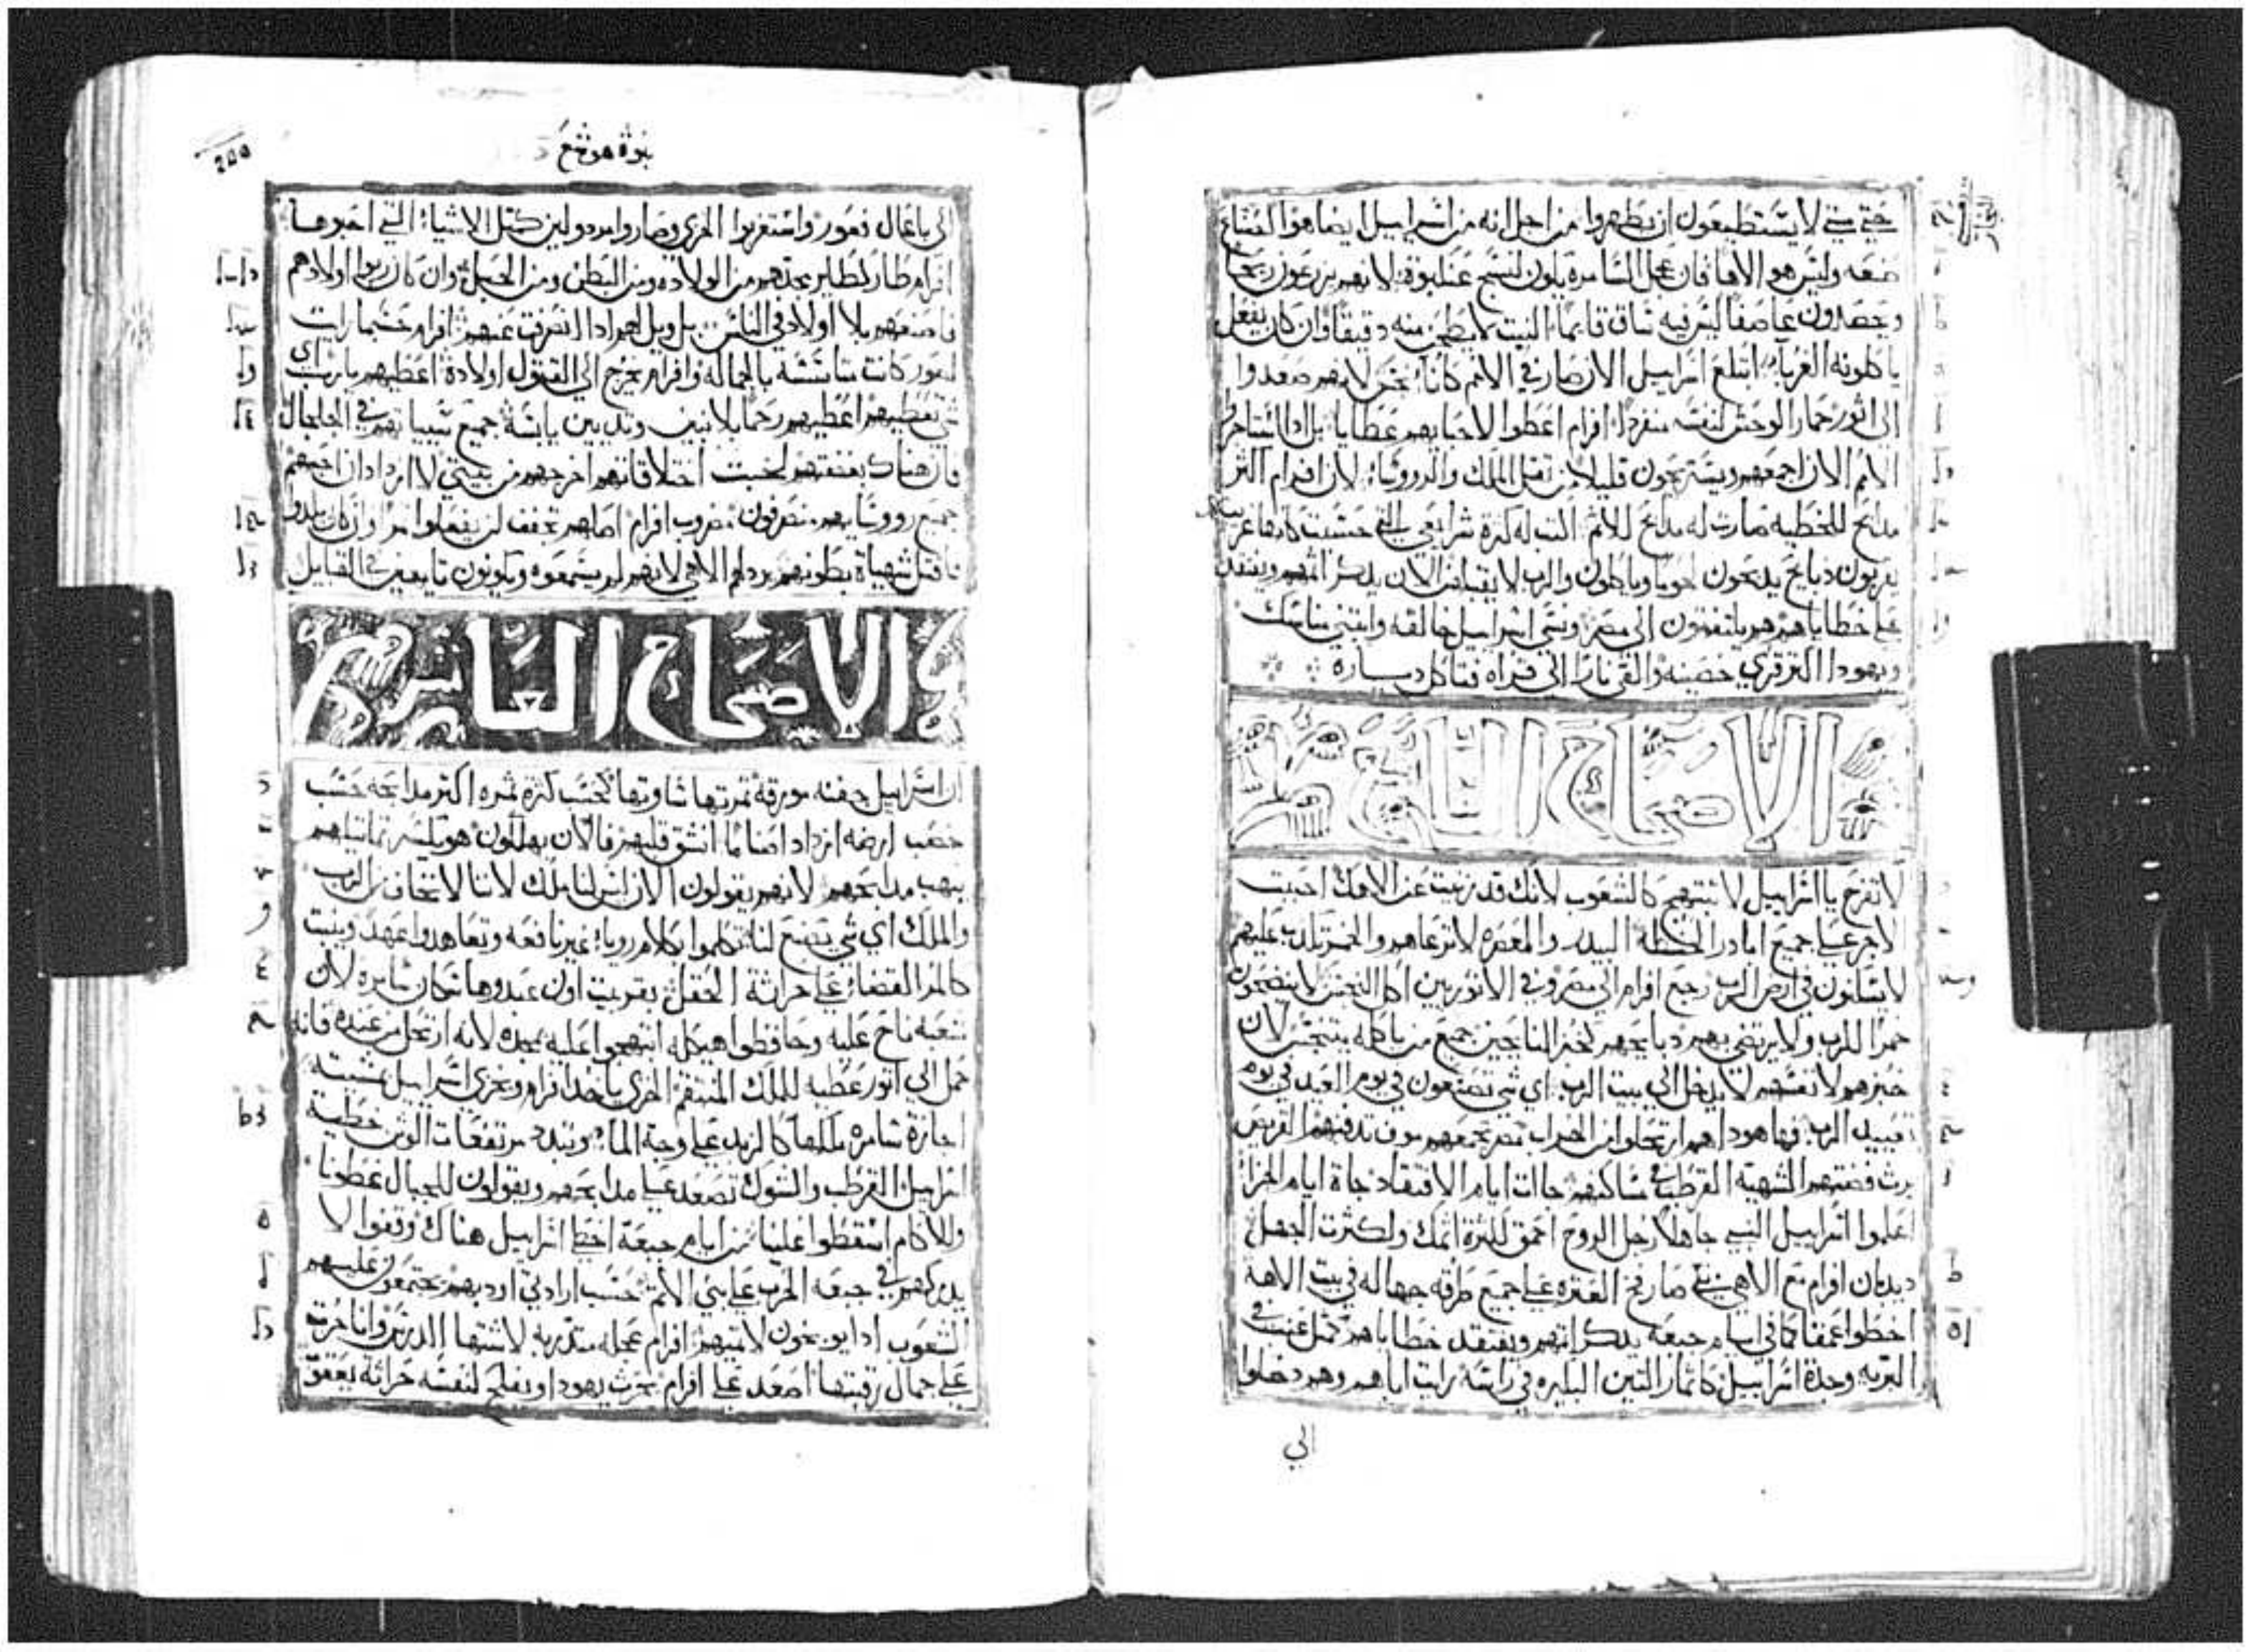 حتي متي لا يستطيعون ان يطهروا من اجل انه من اسراييل ايضا هو الصناع
صنعه وليس هو الاها فان عجل السامره يكون لنسج عنكبوة لانهم يزرعون ريحا
ويحصدون عاصفا ليس فيه ساق قايما النبت لا يطحن منه دقيقا وان كان يفعل
ياكلونه الغربا ابتلع اسراييل الان صار في الامم كانا نجس لانهم صعدوا
الى اثور حمار الوحش لنفسه منفردا افرام اعطوا لاحبابهم عطايا بل اذا استاجروا
الامم الان اجمعهم ويستريحون قليلا من ثقل الملك والروسا لان افرام اكثر
مدابح للخطيه صارت له مدابح للاثم اكتب له كثرة شرايعي التي حسبت
يقربون دبايح يدبحون لحوما وياكلون والرب لا يقبلهم الان يدكر اثمهم ويفتقد
على خطاياهم هم يلتفتون الى مصر ونسي اسراييل خالقه وابتني مناسك
ويهودا اكثر قري حصينه والقي نارا الى قراه فتاكل دياره
الاصحاح التاسع
لا تفرح يا اسراييل لا تبتهج كالشعوب لانك قد زنيت عن الاهك احببت
الاجر على جميع ابادر الحنطه البيدر والمعصره لا ترعاهم والخمر تكدب عليهم
لا يسكنون في ارض الرب رجع افرام الى مصر وفي الاثوريين اكل النجس لا ينضحون
خمرا للرب ولا يرتضي بهم دبايحهم كخبز النايحين جميع من ياكله يتنجس لان
خبزهم لانفسهم لا يدخل الى بيت الرب اي شي تصنعون في يوم العيد في يوم
تعييد الرب فها هودا هم ارتحلوا من الخراب مصر تجمعهم موف تدفنهم القريص
يرث فضتهم الشهية القرطب في مساكنهم جات ايام الافتقاد جاة ايام الجزا
اعلموا اسراييل النبي جاهلا رجل الروح احمق لكثرة اثمك ولكثرت الجهل
ديدبان افرام مع الاهي نبي صار فخ العثره على جميع طرقه جهاله في بيت الاهه
اخطوا عمقا كما في ايام جبعه يدكر اثمهم ويفتقد خطاياهم كمثل عنب في
البريه وجدة اسراييل كاثمار التين البكيره في راسه رايت اباهم وهم دخلوا
الي
نبوة هوشع
٢٥٥
الى باعال فغور واستغربوا للخزي وصاروا مردولين كمثل الاشياء التي احبوها
افرام طار كطاير مجدهم من الولاده ومن البطن ومن الحبل وان كان ربوا اولادهم
فاصنعهم بلا اولاد في الناس بل ويل لهم ادا انصرفت عنهم افرام حسبما رايت
لصور كانت متاسسة بالجماله وافرام يخرج الى القتول اولادة اعطيهم يارب اي
شي تعطيهم اعطيهم رحما بلا بنين وتديين يابسة جميع سيياتهم في الجلجال
فان هناك بغضتهم لخبت اختلاقاتهم اخرجهم من بيتي لا ازداد ان احبهم
جميع رووسايهم منصرفون مضروب افرام اصلهم تجفف لن يفعلوا ثمرا وان كان يلدوا
فاقتل شهياة بطونهم يردلهم الاهي لانهم لم يسمعوه ويكونون تايهين في القبايل
الاصحاح العاشر
ان اسراييل جفنه مورقة ثمرتها مساويتها كحسب كثرة ثمره اكثر مدابحه حسب
خصب ارضه ازداد اصناما انشق قلبهم فالان يهلكون هو يكسر تماثيلهم
ينهب مدابحهم لانهم يقولون الان ليس لنا ملك لاننا لا نخاف من الرب
والملك اي شي يصنع لنا تكلموا بكلام رويا غير نافعه وتعاهدوا عهدا وينبت
كالمر القضا على حراثة الحقل بقريت اون عبدوها سكان سامره لان
شعبه ناح عليه وحافظوا هيكله ابتهجوا عليه بمجده لانه ارتحل من عنده فانه
حمل الى اثور عطيه للملك المنتقم الخزي ياخد افرام ويخزي اسراييل بمشيته
اجازة سامره ملكها كالزبد على وجه الماء وتبدد مرتفعات الوثن خطية
اسراييل القرطب والشوك تصعد على مدابحهم ويقولون للجبال غطونا
وللاكام اسقطوا علينا من ايام جبعة اخطا اسراييل هناك وقفوا لا
يدركهم في جبعه الحرب على بني الاثم حسب ارادتي اودبهم تجتمعون عليهم
الشعوب ادا يوبخون لاثميهم افرام عجله متدربه لاشتها الدرس وانا جزت
على جمال رقبتها اصعد على افرام يحرث يهودا ويفلح لنفسه حراثة يعقوب